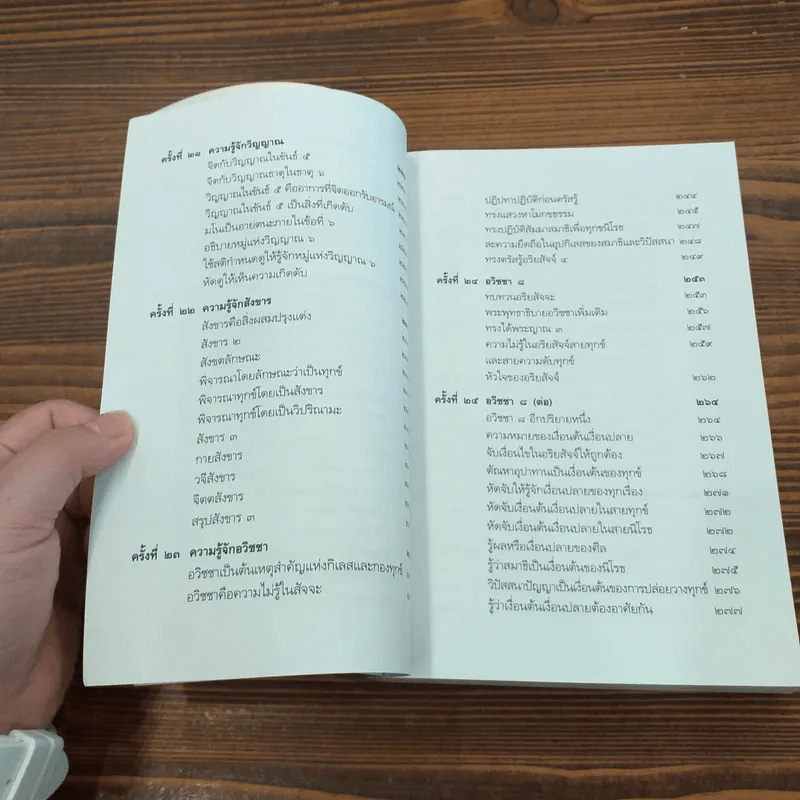 ครั้งที่ ๒๑ ความรู้จักวิญญาณ
จิตกับวิญญาณในขันธ์ ๕
จิตกับวิญญาณธาตุในธาตุ ๖
วิญญาณในขันธ์ ๕ คืออาการที่จิตออกรับอารมณ์
วิญญาณในขันธ์ ๕ เป็นสิ่งที่เกิดดับ
มโนเป็นอายตนะภายในข้อที่ ๖
อธิบายหมู่แห่งวิญญาณ ๖
ใช้สติกำหนดดูให้รู้จักหมู่แห่งวิญญาณ ๖
หัดดูให้เห็นความเกิดดับ
ครั้งที่ ๒๒ ความรู้จักสังขาร
สังขารคือสิ่งผสมปรุงแต่ง
สังขาร ๒
สังขตลักษณะ
พิจารณาโดยลักษณะว่าเป็นทุกข์
พิจารณาทุกข์โดยเป็นสังขาร
พิจารณาทุกข์โดยเป็นวิปริณามะ
สังขาร ๓
กายสังขาร
วจีสังขาร
จิตตสังขาร
สรุปสังขาร ๓
ครั้งที่ ๒๓ ความรู้จักอวิชชา
อวิชชาเป็นต้นเหตุสำคัญแห่งกิเลสและกองทุกข์
อวิชชาคือความไม่รู้ในสัจจะ
ปฏิปทาปฏิบัติก่อนตรัสรู้ ๒๔๔
ทรงแสวงหาโมกขธรรม ๒๔๕
ทรงปฏิบัติสัมมาสมาธิเพื่อทุกขนิโรธ ๒๔๗
ละความยึดถือในอุปกิเลสของสมาธิและวิปัสสนา ๒๔๘
ทรงตรัสรู้อริยสัจจ์ ๔ ๒๔๙
ครั้งที่ ๒๔ อวิชชา ๘ ๒๕๓
ทบทวนอริยสัจจะ ๒๕๓
พระพุทธาธิบายอวิชชาเพิ่มเติม ๒๕๖
ทรงได้พระญาณ ๓ ๒๕๗
ความไม่รู้ในอริยสัจจ์สายทุกข์ ๒๕๙
และสายความดับทุกข์
หัวใจของอริยสัจจ์ ๒๖๒
ครั้งที่ ๒๕ อวิชชา ๘ (ต่อ) ๒๖๔
อวิชชา ๘ อีกปริยายหนึ่ง ๒๖๔
ความหมายของเงื่อนต้นเงื่อนปลาย ๒๖๖
จับเงื่อนไขในอริยสัจจ์ให้ถูกต้อง ๒๖๗
ตัณหาอุปาทานเป็นเงื่อนต้นของทุกข์ ๒๖๘
หัดจับให้รู้จักเงื่อนปลายของทุกเรื่อง ๒๗๑
หัดจับเงื่อนต้นเงื่อนปลายในสายทุกข์ ๒๗๒
หัดจับเงื่อนต้นเงื่อนปลายในสายนิโรธ ๒๗๒
รู้ผลหรือเงื่อนปลายของศีล ๒๗๔
รู้ว่าสมาธิเป็นเงื่อนต้นของนิโรธ ๒๗๕
วิปัสสนาปัญญาเป็นเงื่อนต้นของการปล่อยวางทุกข์ ๒๗๖
รู้ว่าเงื่อนต้นเงื่อนปลายต้องอาศัยกัน ๒๗๗